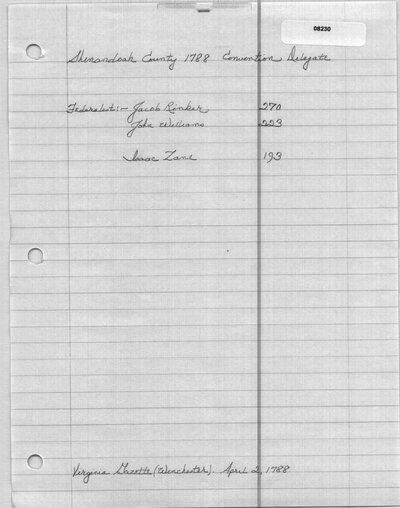 08230
Shenandoah County 1788 Convention Delegate
Federalist:- Jacob Rinker 270
John Williams 223
Isaac Zane 193
Virginia Gazette (Winchester). April 2, 1788